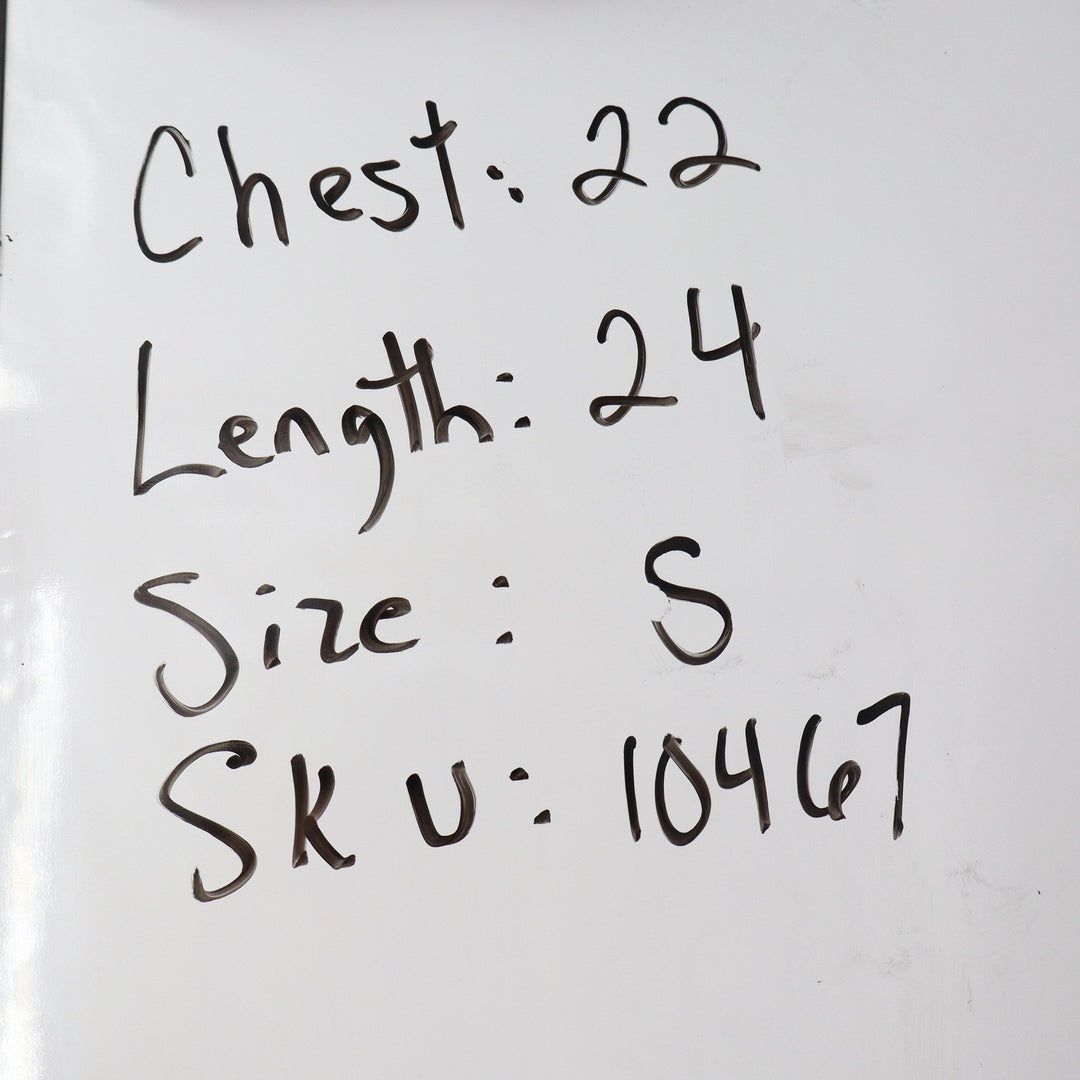 Chest: 22
Length: 24
Size: S
SKU: 10467